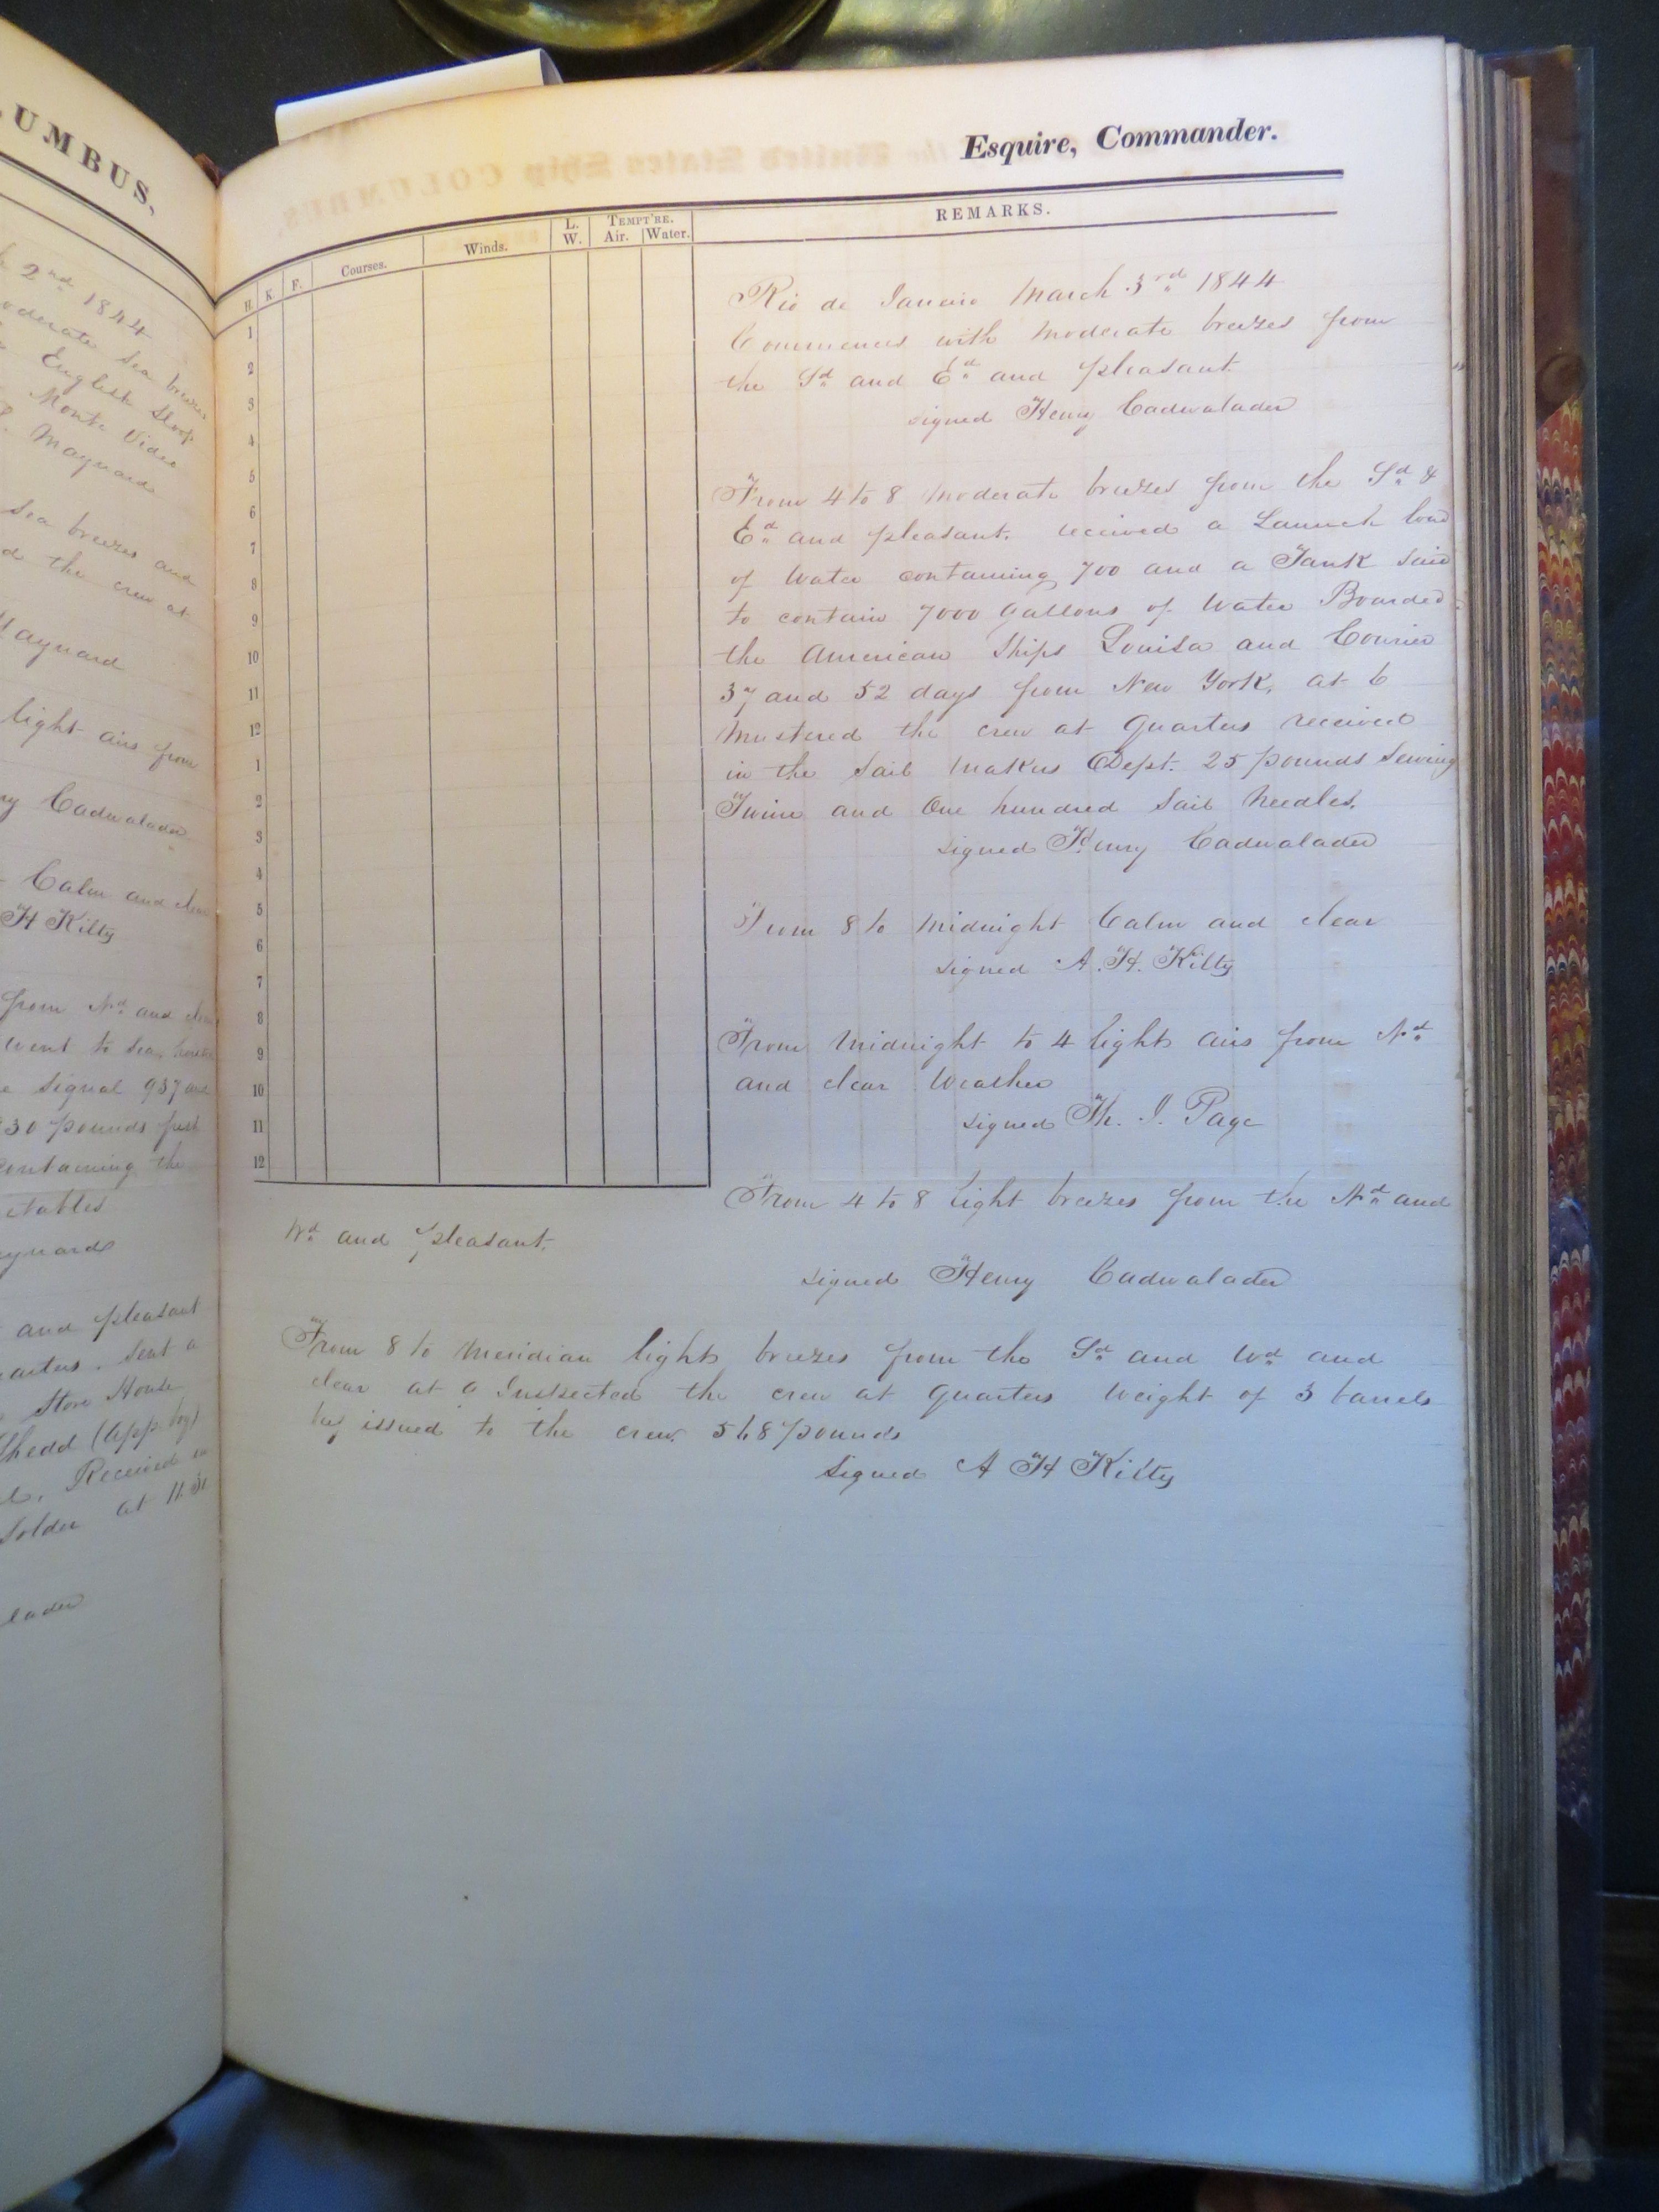 UMBUS,
2nd 1844
oderate Sea breezes
English Sloop
Monte Video
Maynard
Sea breezes and
d the crew at
Maynard
light airs from
ry Cadwalader
Calm and clear
H Kilty
from Nd and clear
went to Sea,
e Signal 937 and
30 pounds fresh
containing the
etables
aynard
and pleasant
arters. Sent a
Store House
Shedd (app boy)
Received in
Solder at 11.30
lader
Esquire, Commander.
H. K. F. Courses. Winds. L. W. TEMPT'RE. Air. Water. REMARKS.
1
2
3
4
5
6
7
8
9
10
11
12
1
2
3
4
5
6
7
8
9
10
11
12
Rio de Janeiro March 3rd 1844
Commences with moderate breezes from
the Sd and Ed and pleasant
signed Henry Cadwalader
From 4 to 8 moderate breezes from the Sd &
Ed and pleasant. received a Launch load
of Water containing 700 and a Tank said
to contain 7000 Gallons of Water Boarded
the American Ships Louisa and Courier
37 and 52 days from New York, at 6
Mustered the crew at Quarters received
in the Sail Makers Dept. 25 pounds Sewing
Twine and One hundred Sail Needles.
signed Henry Cadwalader
From 8 to Midnight Calm and clear
signed A. H. Kilty
From Midnight to 4 light airs from Nd
and clear Weather
signed Th. J. Page
From 4 to 8 light breezes from the Nd and
Wd and pleasant.
signed Henry Cadwalader
From 8 to Meridian light breezes from the Sd and Wd and
clear at 9 Inspected the crew at Quarters Weight of 3 barrels
issued to the crew. 568 pounds
Signed A H Kilty